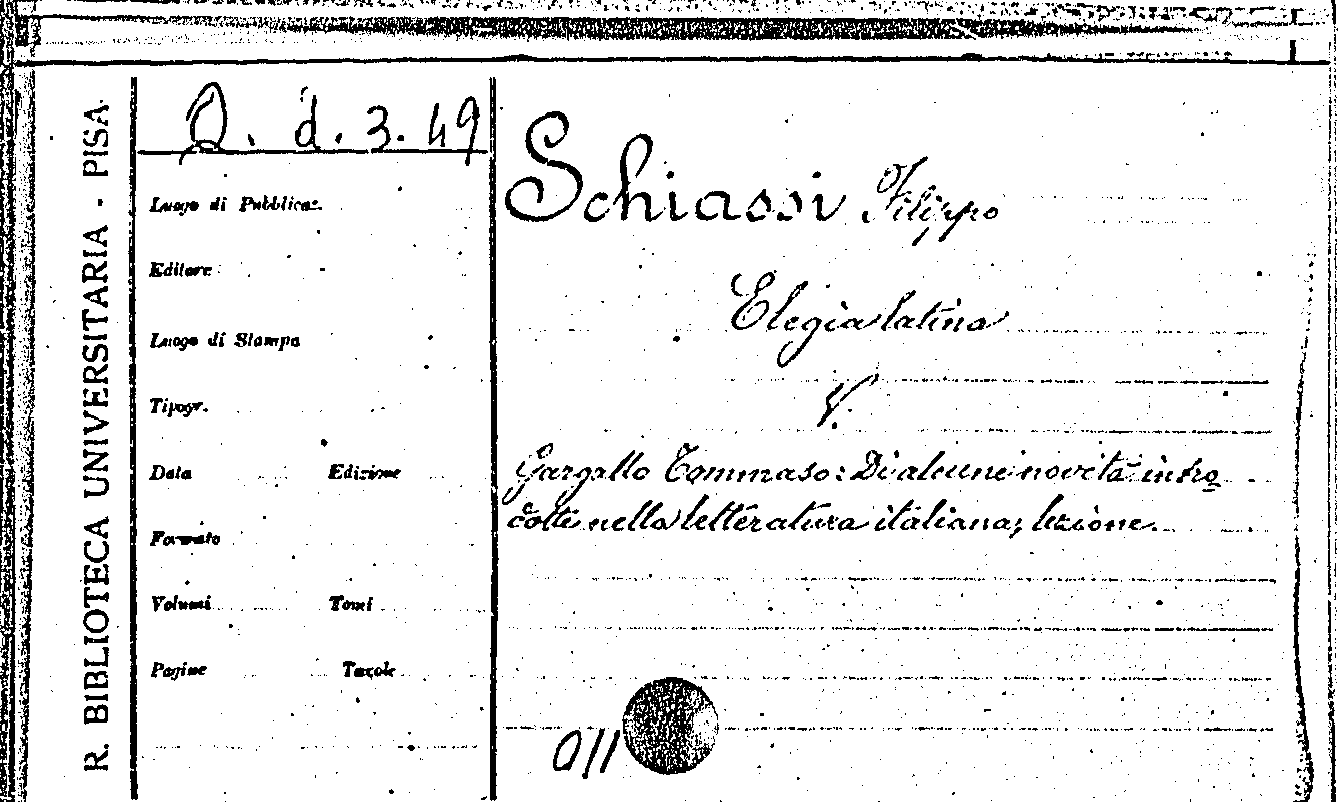 R. BIBLIOTECA UNIVERSITARIA - PISA
Q. d. 3. 49
Luogo di Pubblicaz.
Editore
Luogo di Stampa
Tipogr.
Data Edizione
Formato
Volumi Tomi
Pagine Tavole
Schiassi Filippo
Elegia latina
V.
Gargallo Tommaso: Di alcune novità intro
dotte nella letteratura italiana; lezione.